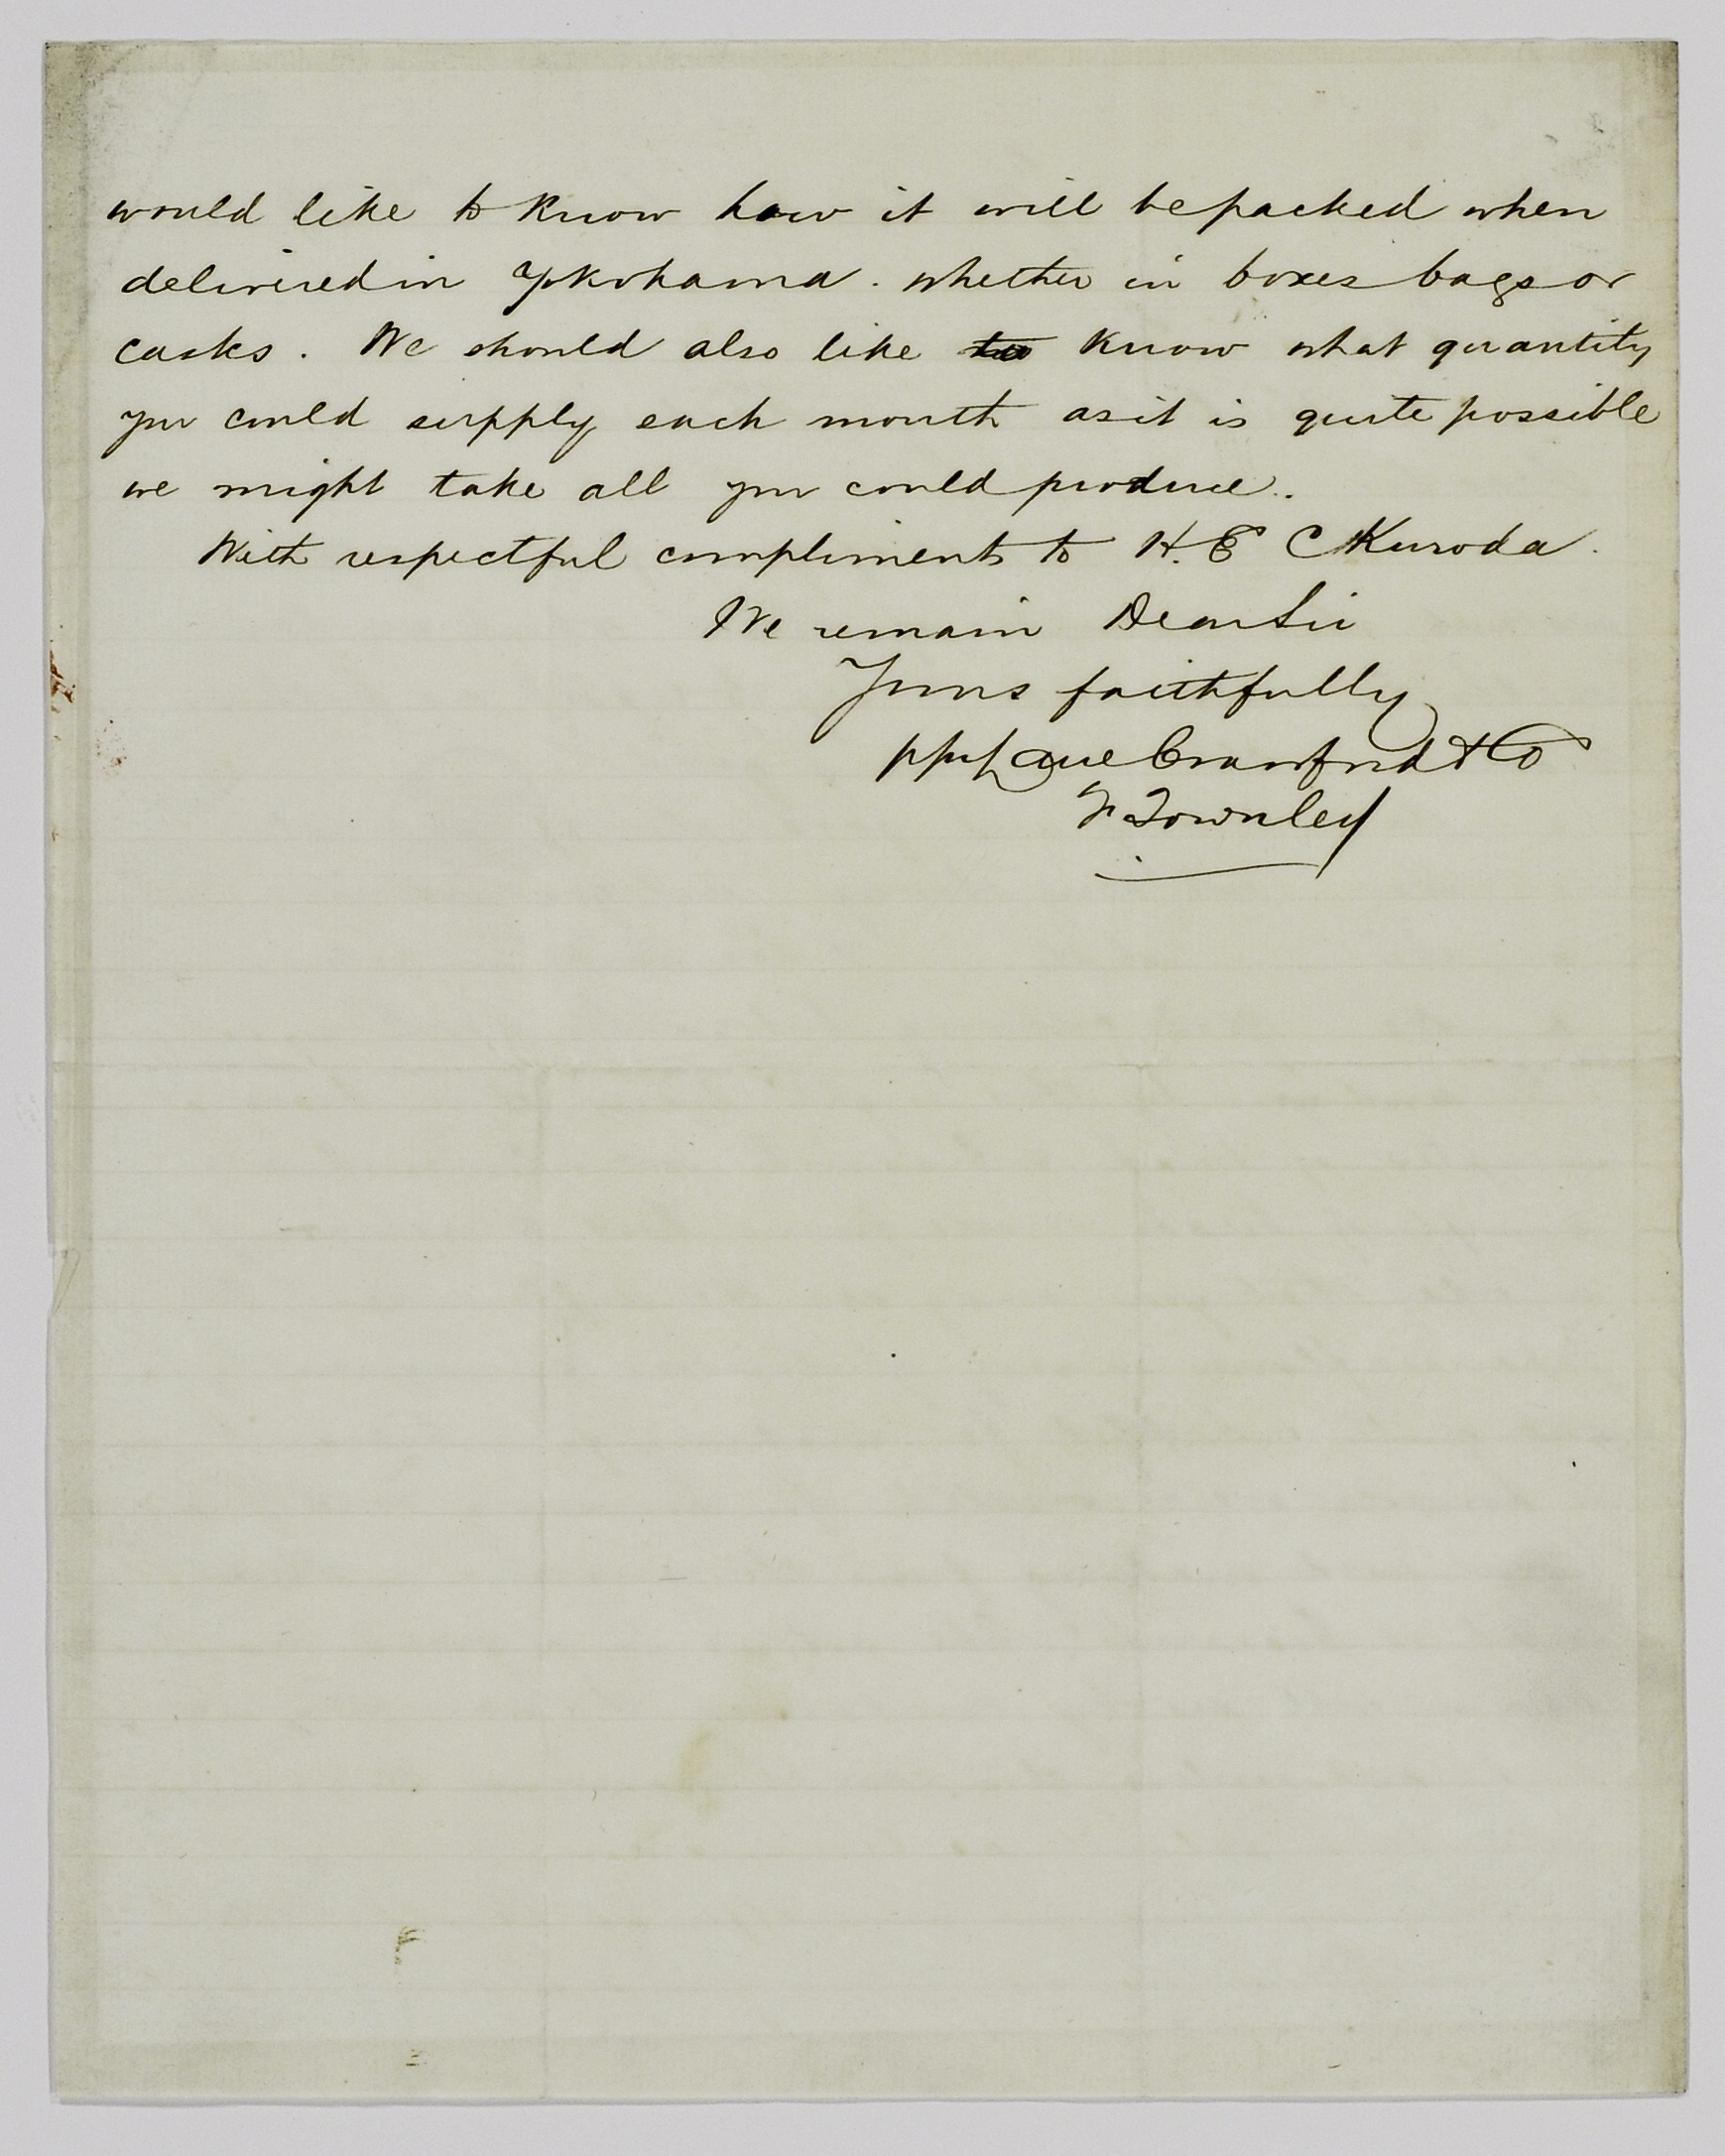 would like to know how it will be packed when
delivered in Yokohama . whether in boxes bags or
casks . We should also like to know what quantity
you could supply each month as it is quite possible
we might take all you could produce .
With respectful compliments to H.E C Kuroda .
We remain Dear Sir
Yours faithfully
Lane Crawford & Co
Townley